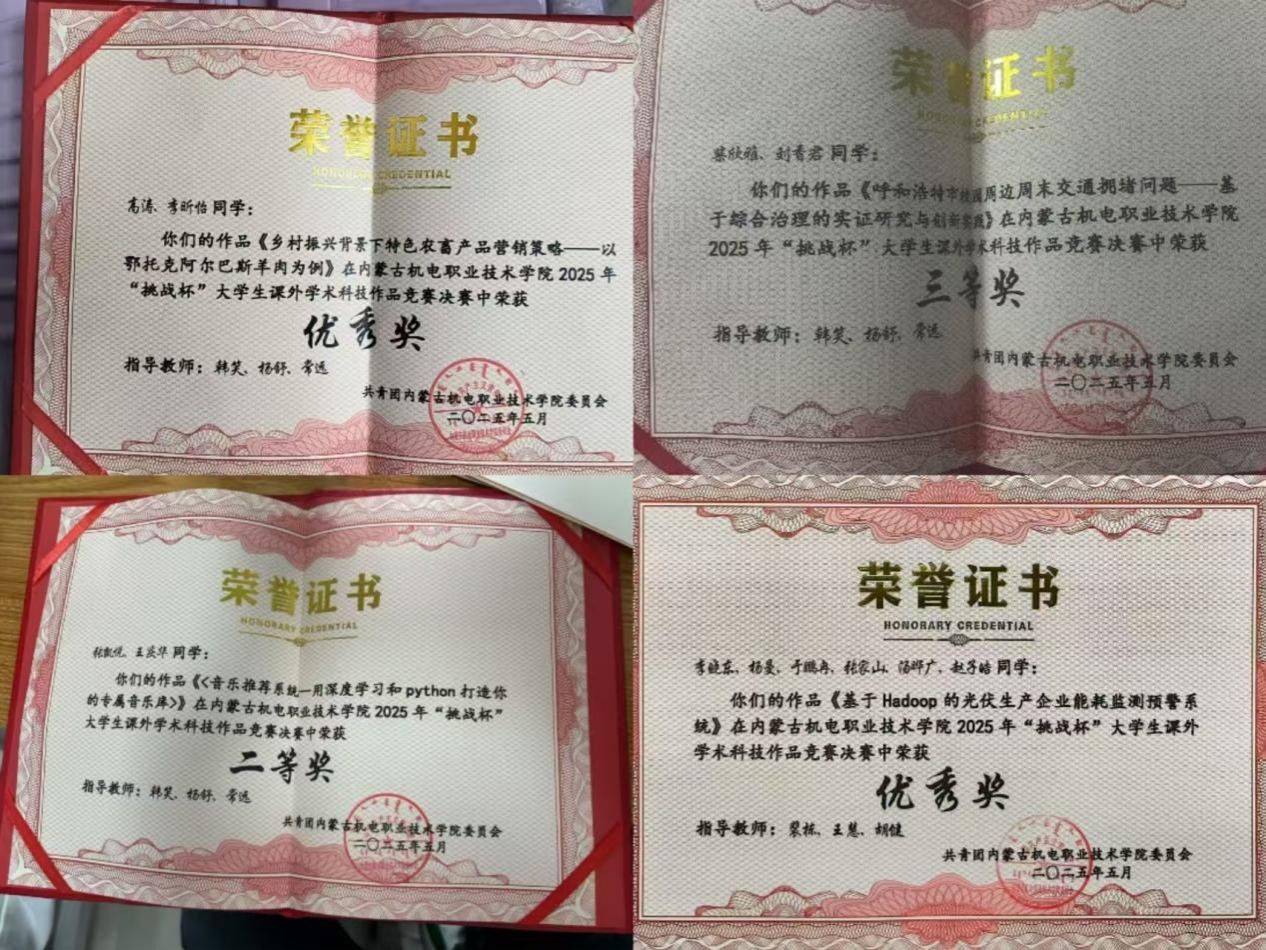 荣誉证书
HONORARY CREDENTIAL
高涛、李昕怡同学：
你们的作品《乡村振兴背景下特色农畜产品营销策略——以
鄂托克阿尔巴斯羊肉为例》在内蒙古机电职业技术学院2025年
“挑战杯”大学生课外学术科技作品竞赛决赛中荣获
优秀奖
指导教师：韩笑、杨舒、常远
共青团内蒙古机电职业技术学院委员会
二〇二五年五月
荣誉证书
HONORARY CREDENTIAL
欣雅、刘香君同学：
你们的作品《呼和浩特市校园周边周末交通拥堵问题——基
于综合治理的实证研究与创新实践》在内蒙古机电职业技术学院
2025年“挑战杯”大学生课外学术科技作品竞赛决赛中荣获
三等奖
指导教师：韩笑、杨舒、常远
共青团内蒙古机电职业技术学院委员会
二〇二五年五月
荣誉证书
HONORARY CREDENTIAL
张凯悦、王奕华同学：
你们的作品《<音乐推荐系统—用深度学习和python打造你
的专属音乐库>》在内蒙古机电职业技术学院2025年“挑战杯”
大学生课外学术科技作品竞赛决赛中荣获
二等奖
指导教师：韩笑、杨舒、常远
共青团内蒙古机电职业技术学院委员会
二〇二五年五月
荣誉证书
HONORARY CREDENTIAL
李晓东、杨曼、于鹏冉、张家山、汤晔广、赵子皓同学：
你们的作品《基于Hadoop的光伏生产企业能耗监测预警系
统》在内蒙古机电职业技术学院2025年“挑战杯”大学生课外
学术科技作品竞赛决赛中荣获
优秀奖
指导教师：翠栋、王慧、胡健
共青团内蒙古机电职业技术学院委员会
二〇二五年五月